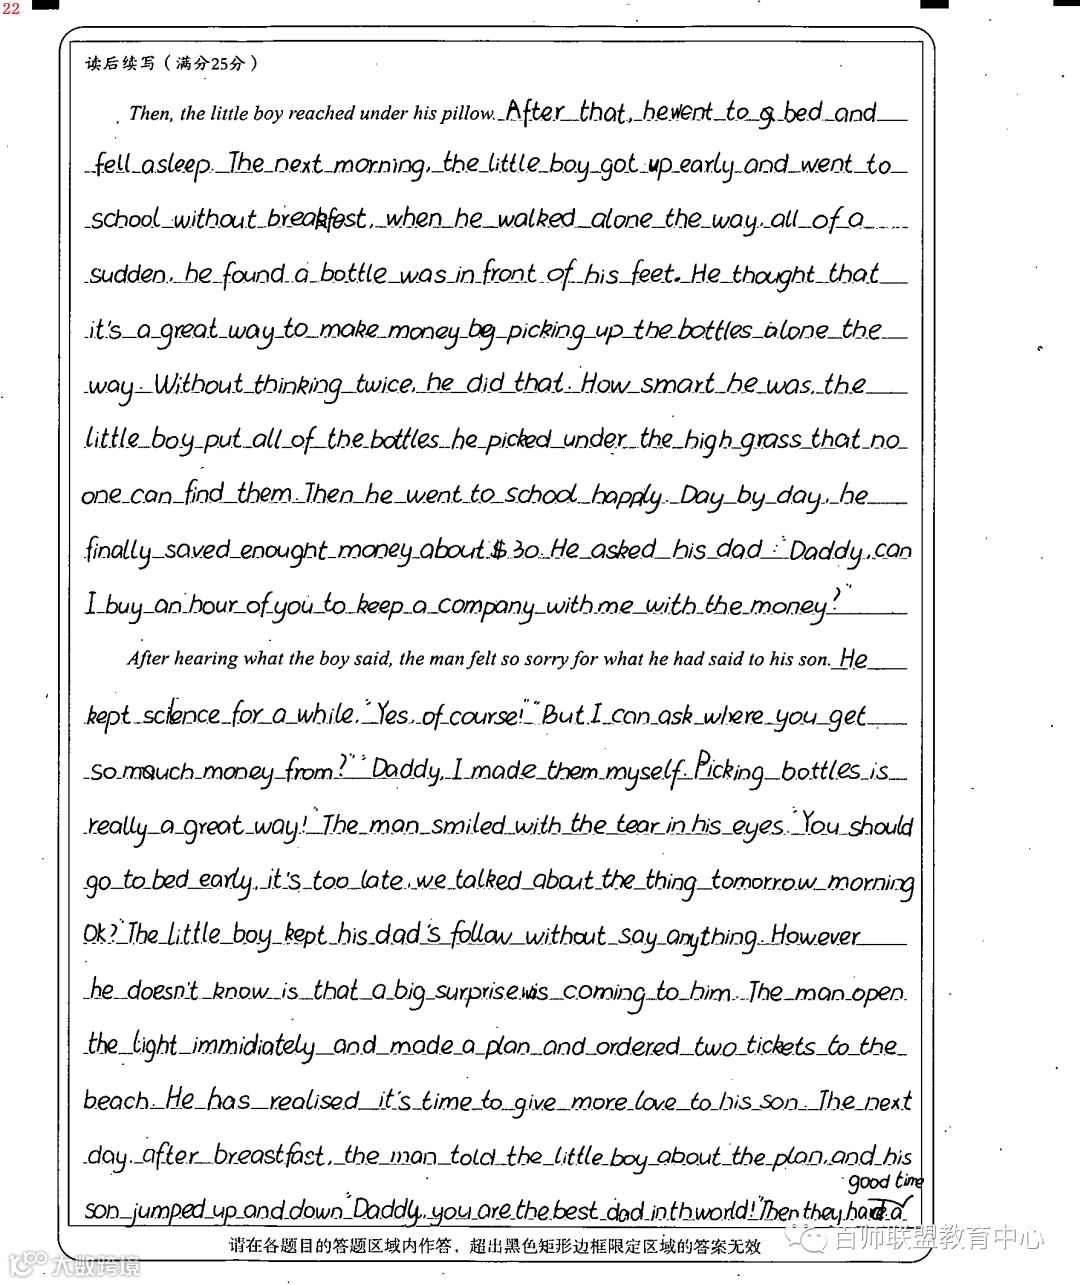 22
读后续写（满分25分）
Then, the little boy reached under his pillow. After that, he went to bed and
fell asleep. The next morning, the little boy got up early and went to
school without breakfest, when he walked alone the way, all of a
sudden, he found a bottle was in front of his feet. He thought that
it's a great way to make money by picking up the bottles alone the
way. Without thinking twice, he did that. How smart he was, the
little boy put all of the bottles he picked under the high grass that no
one can find them. Then he went to school happly. Day by day, he
finally saved enought money about $30. He asked his dad: "Daddy, can
I buy an hour of you to keep a company with me with the money?"
After hearing what the boy said, the man felt so sorry for what he had said to his son. He
kept science for a while. "Yes, of course!" "But I can ask where you get
so much money from?" "Daddy, I made them myself. Picking bottles is
really a great way!" The man smiled with the tear in his eyes. "You should
go to bed early, it's too late, we talked about the thing tomorrow morning
Ok?" The little boy kept his dad's follow without say anything. However
he doesn't know is that a big surprise was coming to him. The man open
the light immidiately and made a plan and ordered two tickets to the
beach. He has realised it's time to give more love to his son. The next
day, after breastfast, the man told the little boy about the plan, and his
son jumped up and down "Daddy, you are the best dad in th world!" Then they had a good time
请在各题目的答题区域内作答，超出黑色矩形边框限定区域的答案无效
百师联盟教育中心
大数跨境